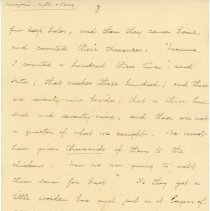 Marjorie, Ruth & Betsy 2
four deep holes, and then they came home
and counted their treasures. "Mamma,
I counted a hundred three times", said
Ruth, "that makes three hundred; and there
are seventy-nine besides, that is three hun-
dred and seventy-nine; and there are not
a quarter of what we caught. We must
have given thousands of them to the
chickens. Now we are going to salt
them down for bait." So they got a
little wooden box and put in a layer of